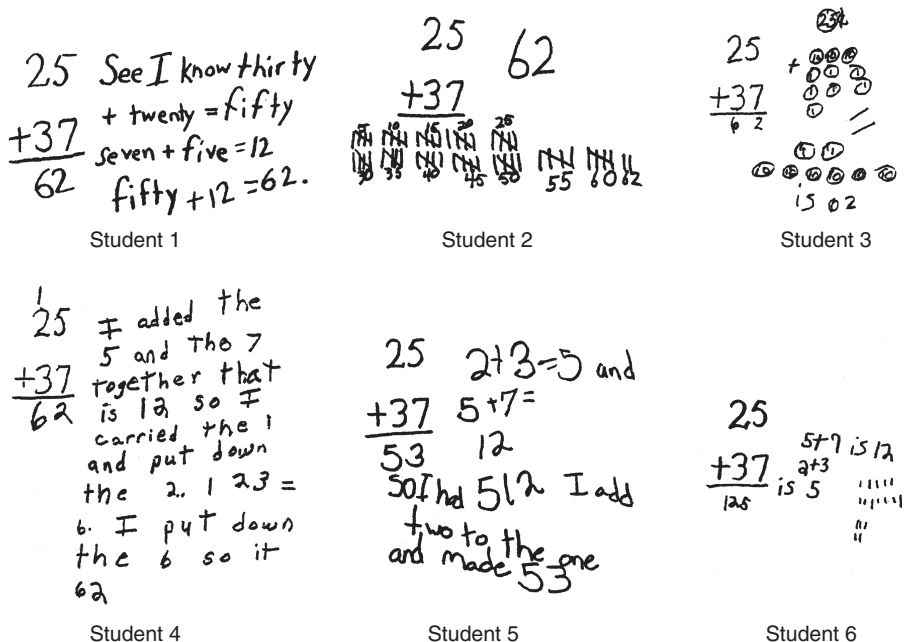 25 See I know thirty
+37 + twenty = fifty
62 seven + five = 12
fifty + 12 = 62.
Student 1
25 62
+37
5 10 15 20 25
30 35 40 45 50 55 60 62
Student 2
25
+37
62
+
10 10 10
1 1 1
1 1 1
1
1 1
10 10 10 10 10 10
is 62
Student 3
1
25 I added the
5 and the 7
+37 together that
62 is 12 so I
carried the 1
and put down
the 2. 1 23 =
6. I put down
the 6 so it
62
Student 4
25 2+3=5 and
+37 5+7=
53 12
so I had 512 I add
two to the one
and made 53
Student 5
25
+37 5+7 is 12
125 is 2+3
5
Student 6